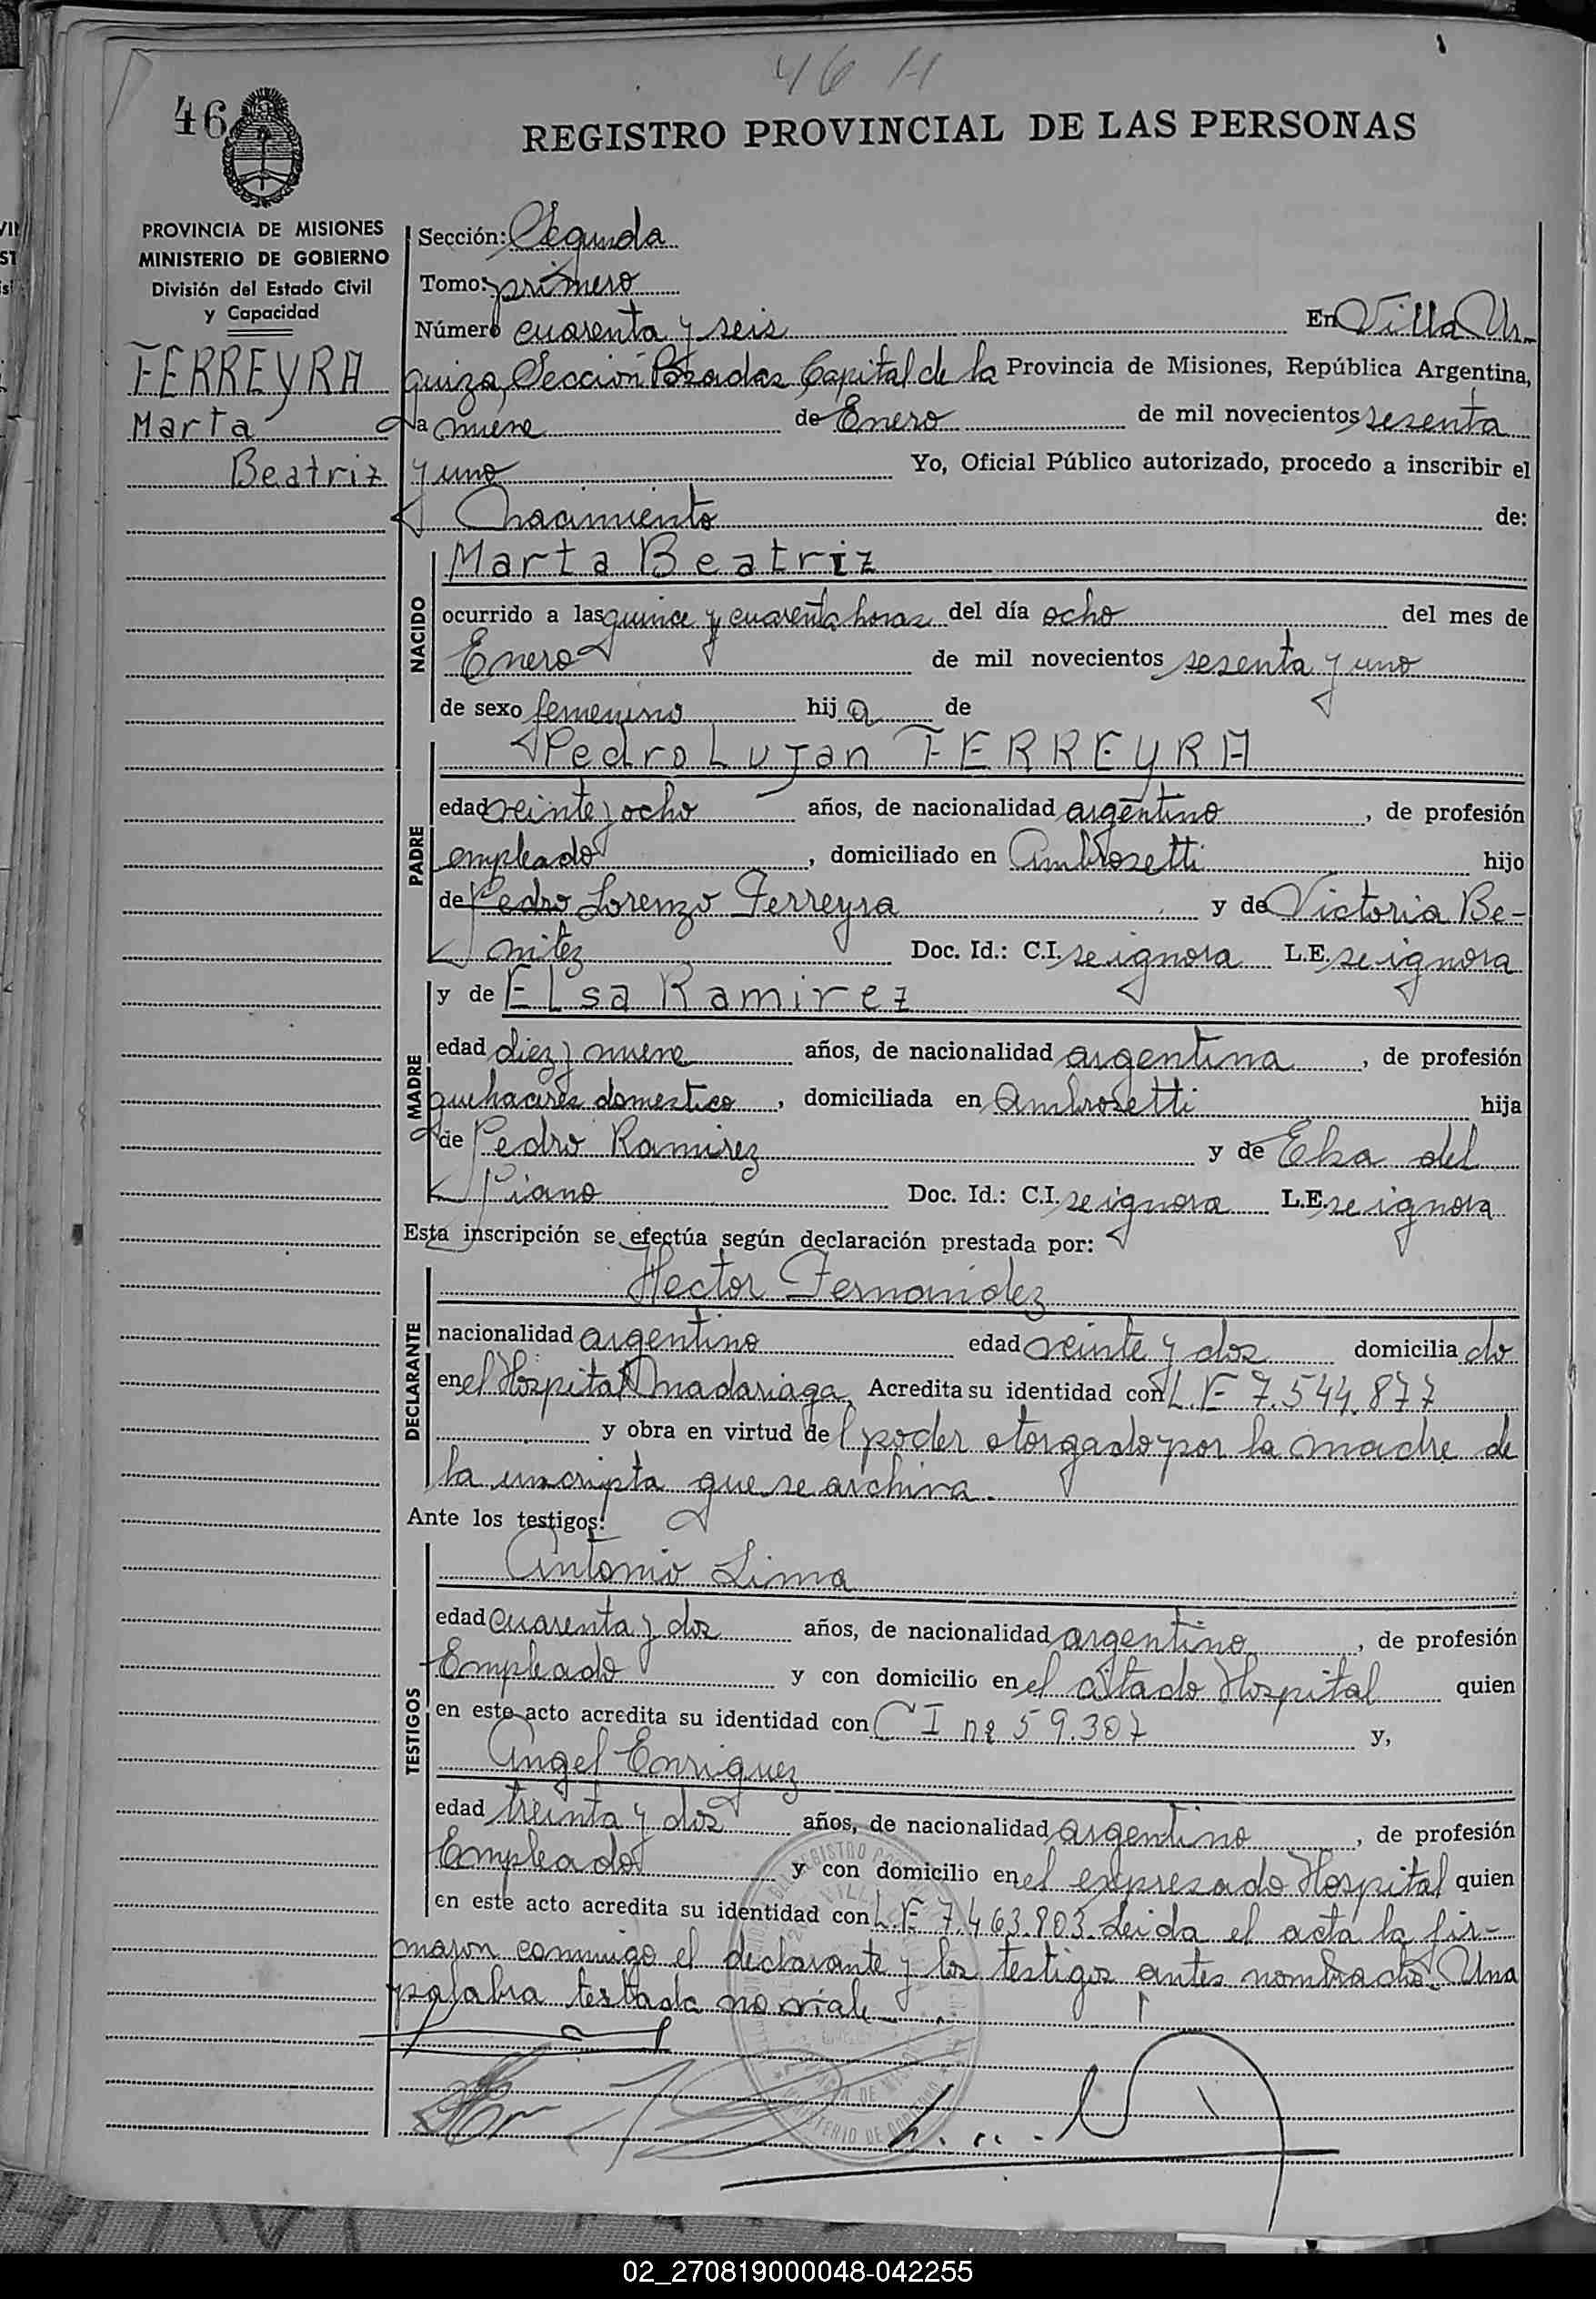 46 H
46
REGISTRO PROVINCIAL DE LAS PERSONAS
PROVINCIA DE MISIONES
MINISTERIO DE GOBIERNO
División del Estado Civil
y Capacidad
FERREYRA
Marta
Beatriz
Sección: Segunda
Tomo: primero
Número cuarenta y seis En Villa Ur-
quiza, Sección Posadas Capital de la Provincia de Misiones, República Argentina,
a nueve de Enero de mil novecientos sesenta
y uno Yo, Oficial Público autorizado, procedo a inscribir el
nacimiento de:
NACIDO
Marta Beatriz
ocurrido a las quince y cuarenta horas del día ocho del mes de
Enero de mil novecientos sesenta y uno
de sexo femenino hij a de
PADRE
Pedro Lujan FERREYRA
edad veinte y ocho años, de nacionalidad argentino, de profesión
empleado, domiciliado en Ambrosetti hijo
de Pedro Lorenzo Ferreyra y de Victoria Be-
nitez Doc. Id.: C.I. se ignora L.E. se ignora
MADRE
y de Elsa Ramirez
edad diez y nueve años, de nacionalidad argentina, de profesión
quehaceres domestico, domiciliada en Ambrosetti hija
de Pedro Ramirez y de Elsa del
Piano Doc. Id.: C.I. se ignora L.E. se ignora
Esta inscripción se efectúa según declaración prestada por:
DECLARANTE
Hector Fernandez
nacionalidad argentino edad veinte y dos domicilia do
en el Hospital Madariaga, Acredita su identidad con L.E 7.544.877
y obra en virtud del poder otorgado por la madre de
la inscripta que se archiva.
Ante los testigos:
TESTIGOS
Antonio Lima
edad cuarenta y dos años, de nacionalidad argentino, de profesión
Empleado y con domicilio en el citado Hospital quien
en este acto acredita su identidad con C I nº 59.307 y,
Angel Enriquez
edad treinta y dos años, de nacionalidad argentino, de profesión
Empleado y con domicilio en el expresado Hospital quien
en este acto acredita su identidad con L.E 7.463.903. Leida el acta la fir-
maron conmigo el declarante y los testigos antes nombrados. Una
palabra testada no vale
MINISTERIO DE GOBIERNO
02_270819000048-042255